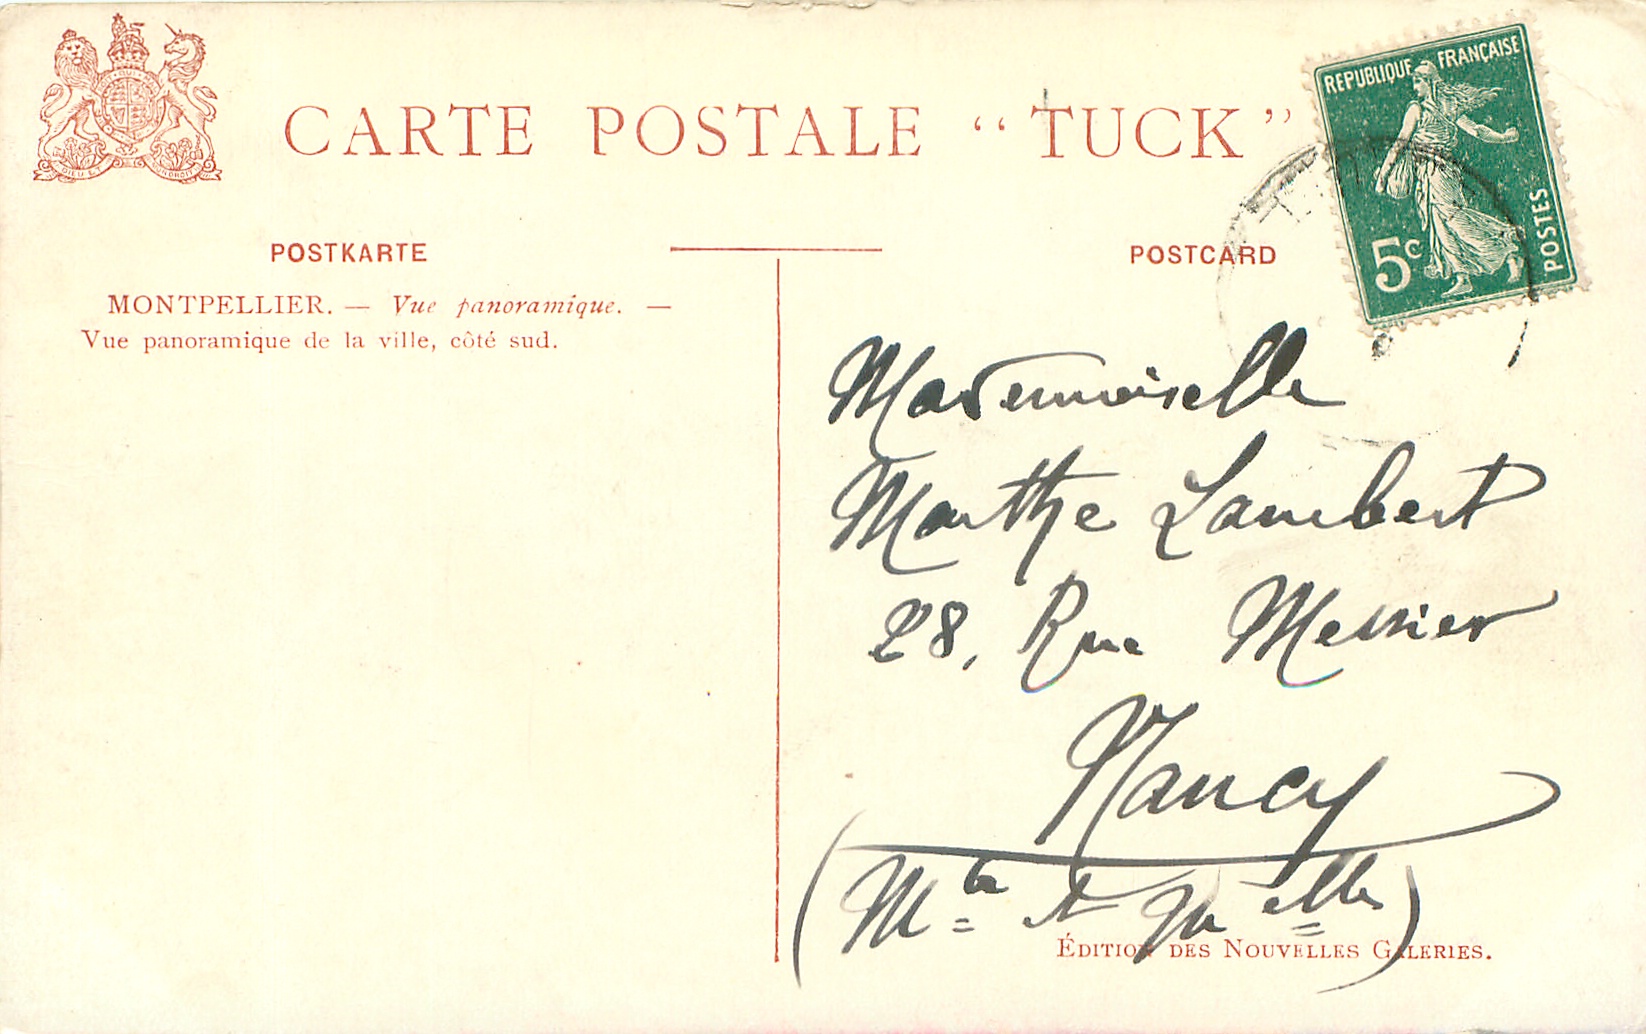 CARTE POSTALE “TUCK”
REPUBLIQUE FRANÇAISE
5c
POSTES
POSTKARTE
POSTCARD
MONTPELLIER. — Vue panoramique. —
Vue panoramique de la ville, côté sud.
Mademoiselle
Marthe Lambert
28, Rue Messier
Nancy
(Mthe et
ÉDITION DES NOUVELLES GALERIES.
DIEU ET MON DROIT